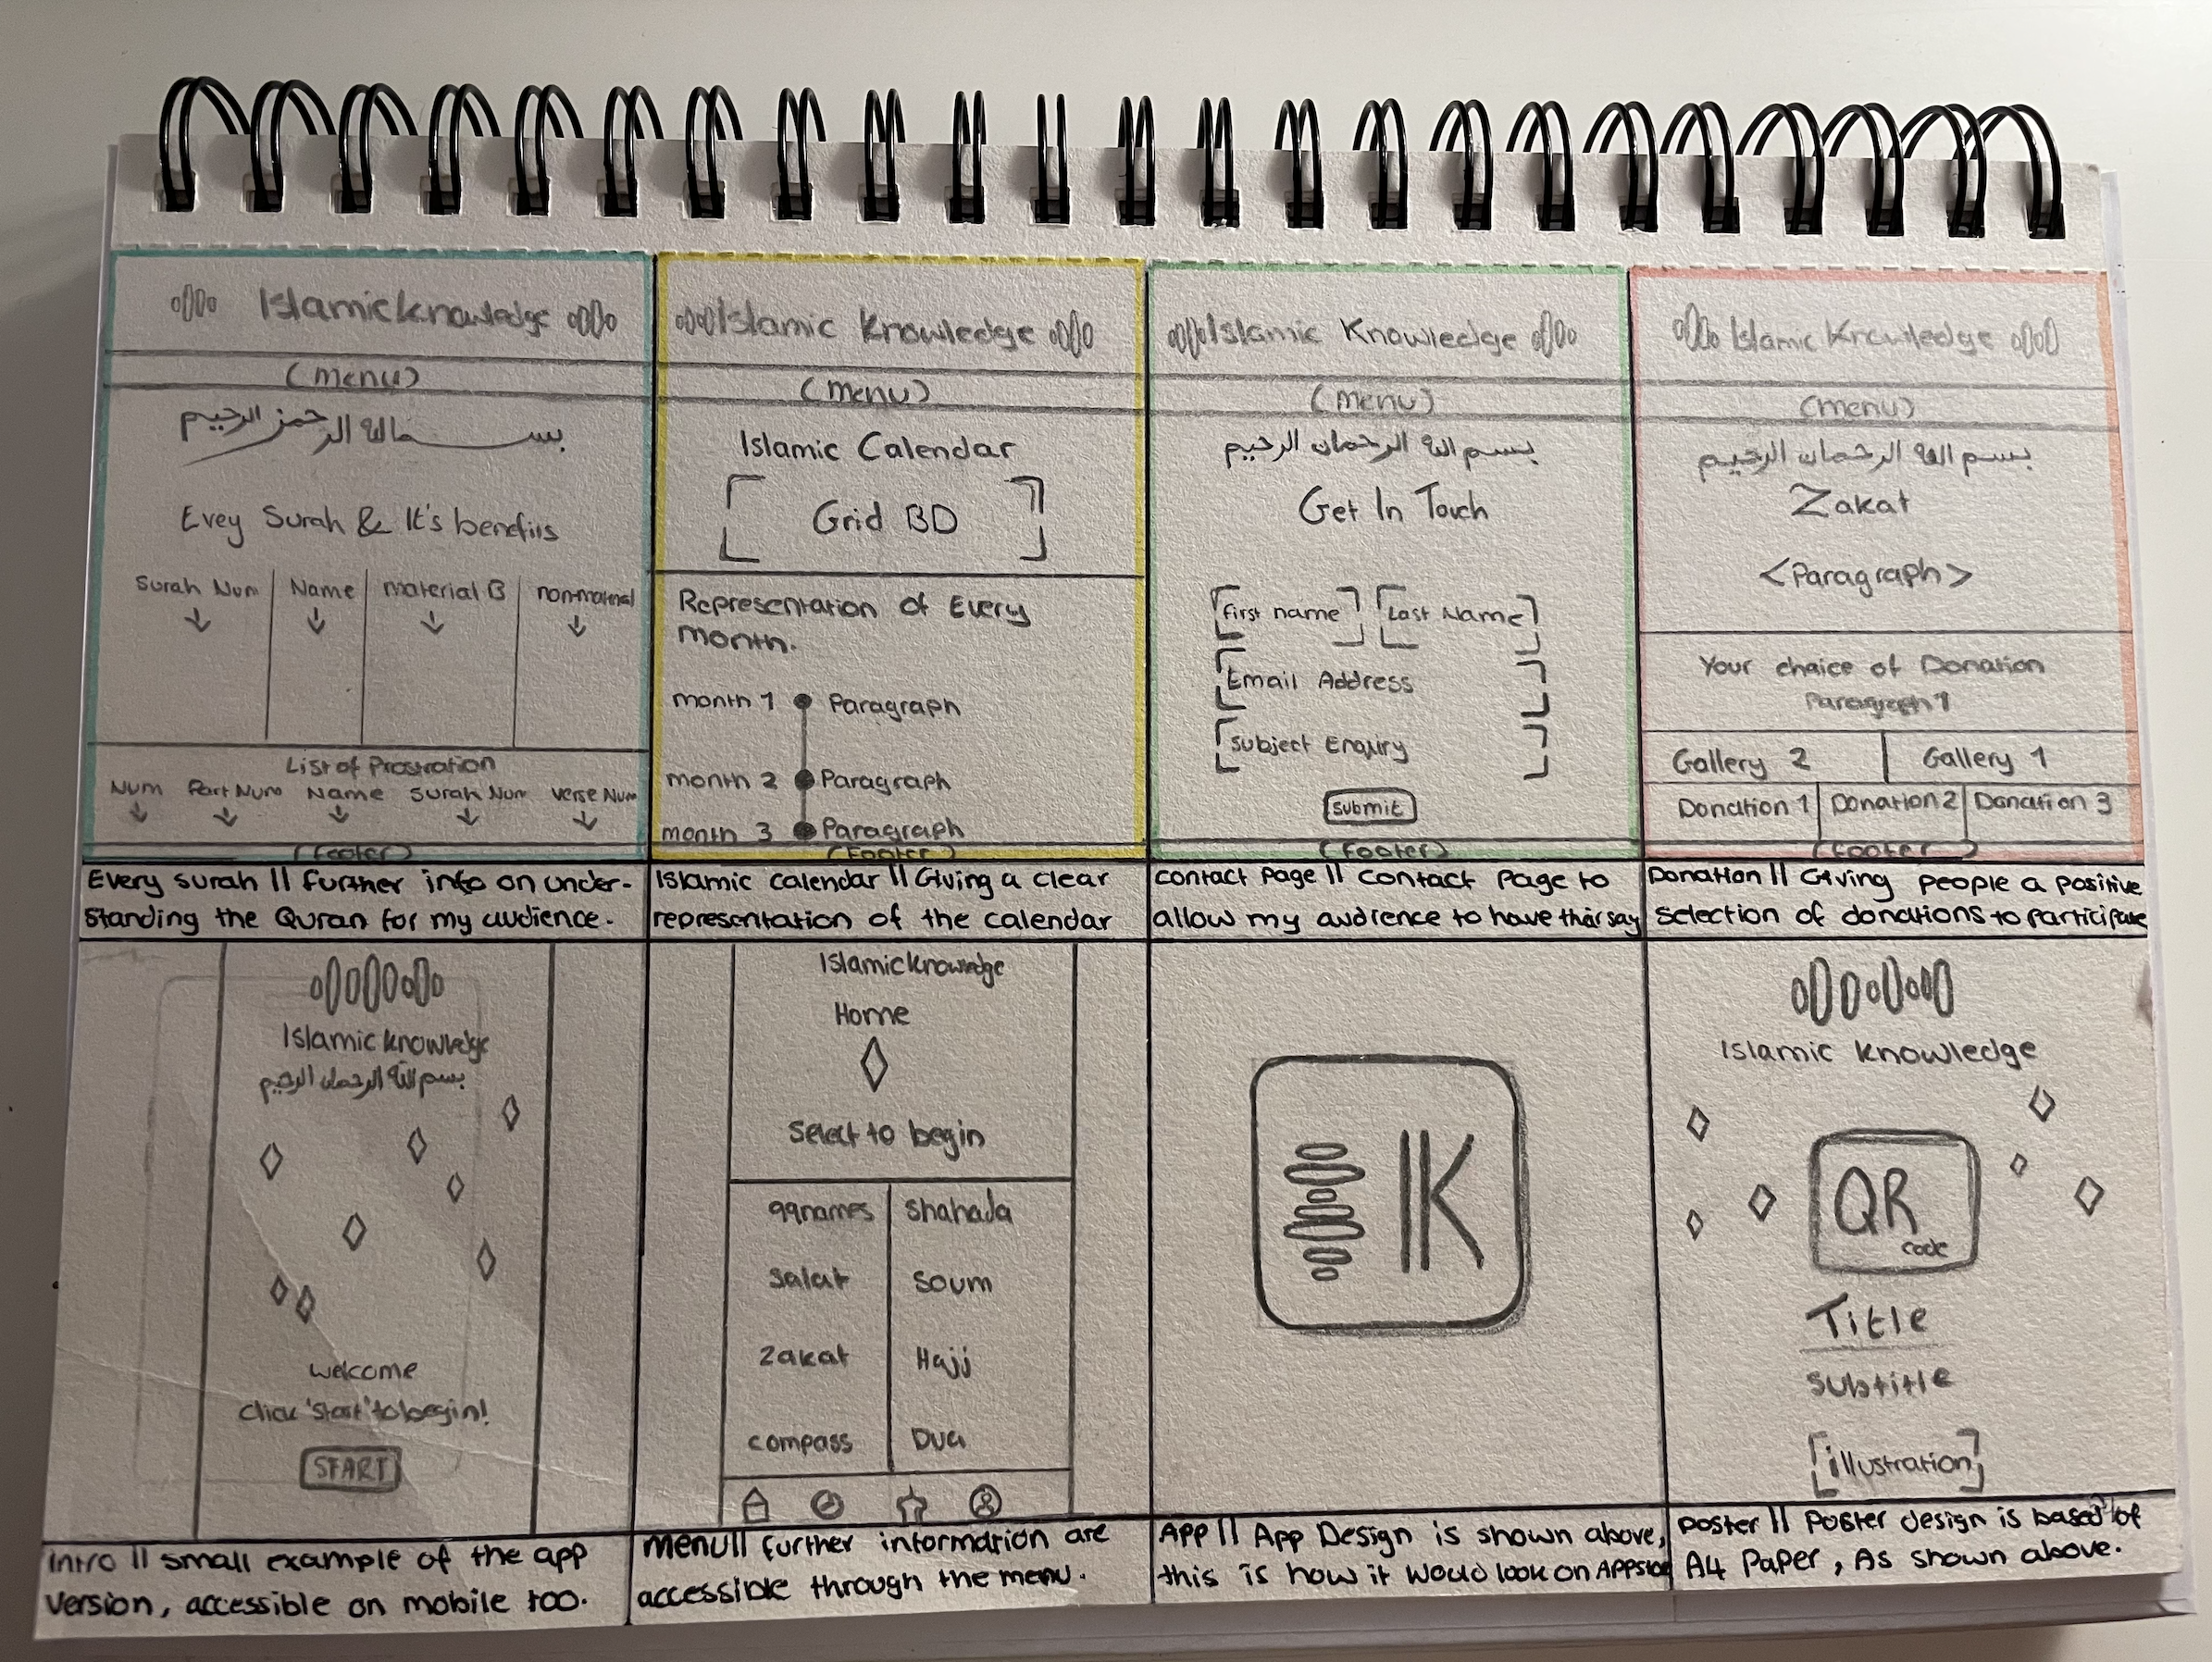 Islamic knowledge
(menu)
بسم الله الرحمن الرحيم
Evey Surah & It's benefits
Surah Num
Name
material B
non-material
List of Prostration
Num
Part Num
Name
Surah Num
verse Num
(footer)
Every surah || further info on under-
standing the Quran for my audience.
Islamic knowledge
(menu)
Islamic Calendar
Grid BD
Representation of Every
month.
month 1
Paragraph
month 2
Paragraph
month 3
Paragraph
(footer)
Islamic calendar || Giving a clear
representation of the calendar
Islamic Knowledge
(menu)
بسم الله الرحمان الرحيم
Get In Touch
First name
Last Name
Email Address
Subject Enqiry
submit
(footer)
contact page || contact page to
allow my audience to have their say
Islamic Knowledge
(menu)
بسم الله الرحمان الرحيم
Zakat
<Paragraph>
Your choice of Donation
Paragraph 1
Gallery 2
Gallery 1
Donation 1
Donation 2
Donation 3
(footer)
Donation || Giving people a positive
selection of donations to participate
Islamic knowledge
بسم الله الرحمان الرحيم
welcome
click 'start' to begin!
START
Intro || small example of the app
version, accessible on mobile too.
Islamic knowledge
Home
Select to begin
99names
Shahada
Salat
Soum
Zakat
Hajj
compass
Dua
menu || further information are
accessible through the menu.
IK
App || App Design is shown above,
this is how it would look on Appstore
Islamic knowledge
QR
code
Title
Subtitle
illustration
Poster || Poster design is based of
A4 Paper, As shown above.